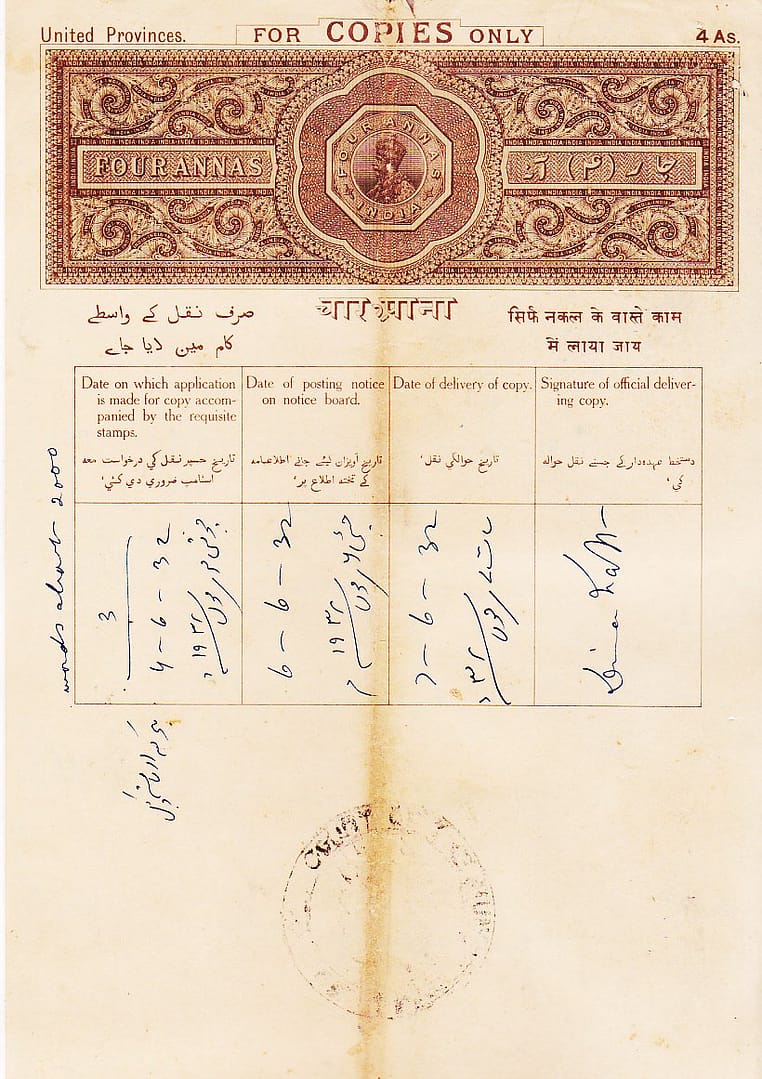 United Provinces.
FOR COPIES ONLY
4 As.
FOUR ANNAS
FOUR ANNAS
INDIA
چار (۴) آنہ
صرف نقل کے واسطے
کام مین لایا جاے
चार आना
सिर्फ नकल के वास्ते काम
में लाया जाय
Date on which application
is made for copy accom-
panied by the requisite
stamps.
تاریخ جسپر نقل کي درخواست معہ
اسٹامپ ضروري دي گئي،
Date of posting notice
on notice board.
تاریخ آویزان کیئے جانے اطلاعنامہ
کے تختہ اطلاع پر،
Date of delivery of copy.
تاریخ حوالگی نقل،
Signature of official deliver-
ing copy.
دستخط عہدہ دار کے جسنے نقل حوالہ
کي،
words about 2000
3
4-6-32
6-6-32
7-6-32
COURT